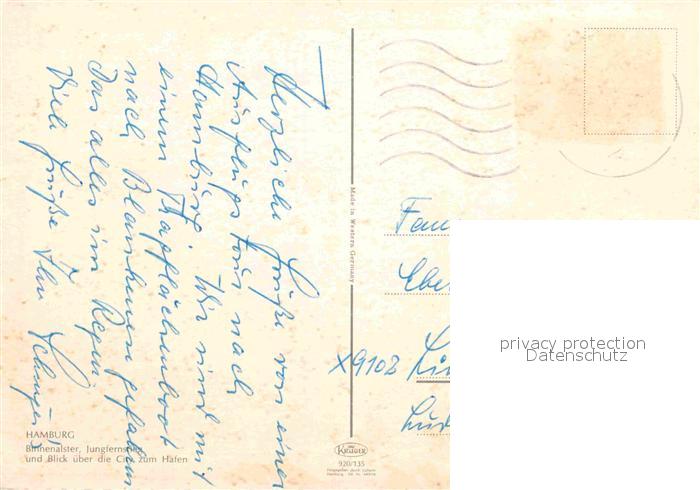 Herzliche Grüße von einer
Ausflugstour nach
Hamburg. Wir sind mit
einem
nach Blankenese gefahren
Das alles im Regen
Viele Grüße Ihr
HAMBURG
Binnenalster, Jungfernstieg
und Blick über die City zum Hafen
Made in Western Germany
KRÜGER
920/135
Fam
Ebe
X9102
privacy protection
Datenschutz